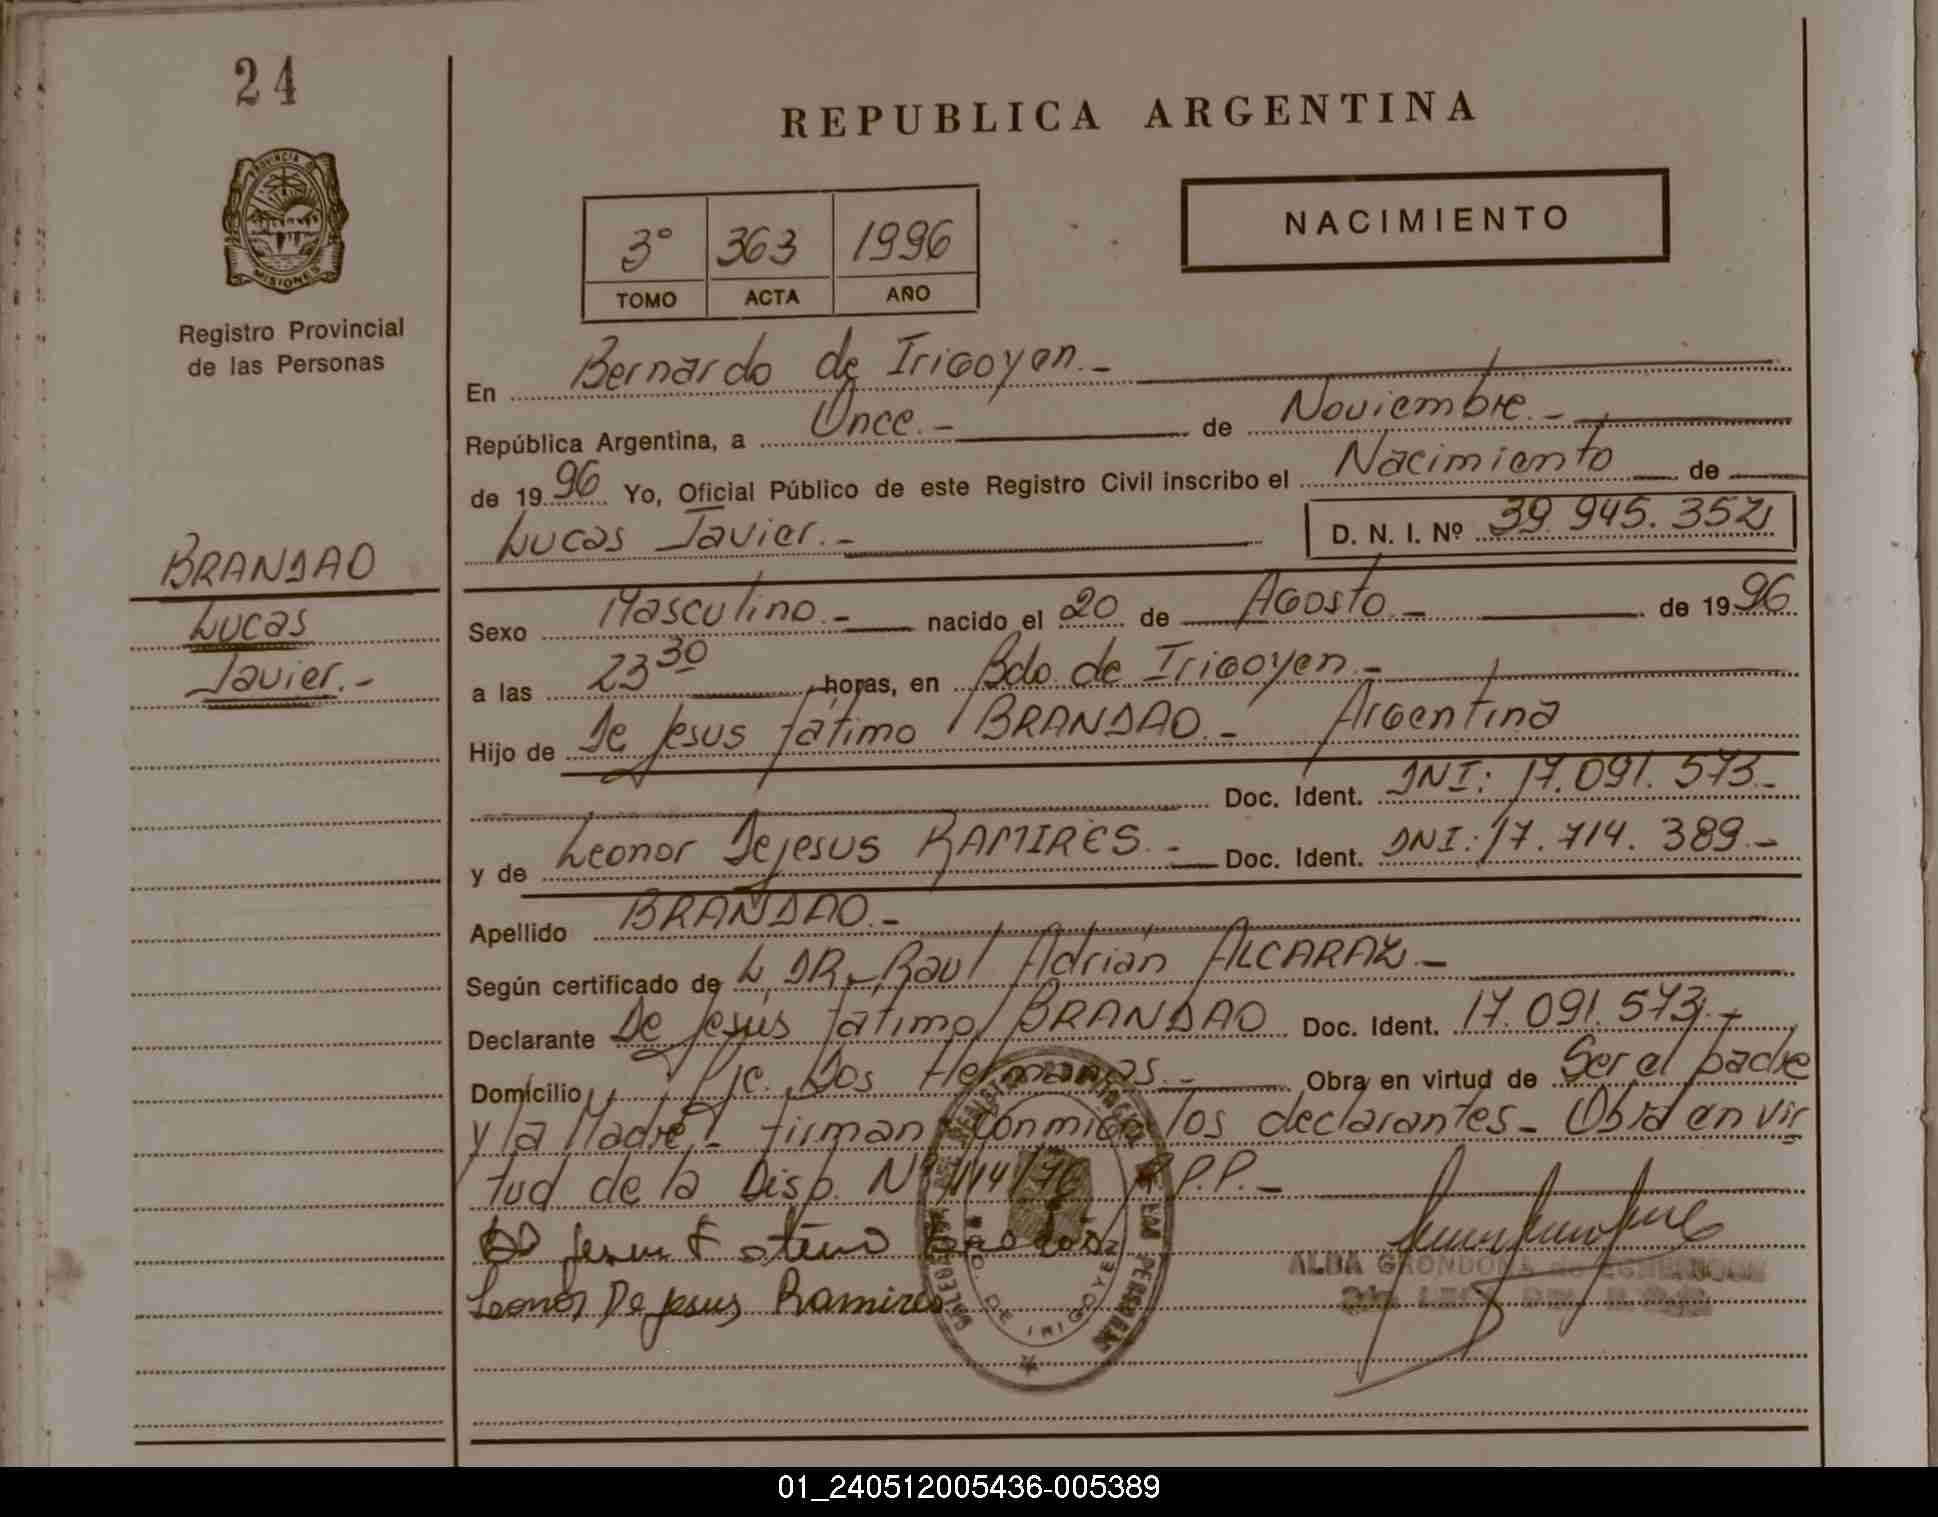 24
REPUBLICA ARGENTINA
PROVINCIA DE
MISIONES
Registro Provincial
de las Personas
NACIMIENTO
3° 363 1996
TOMO ACTA AÑO
En Bernardo de Irigoyen.-
República Argentina, a Once.- de Noviembre.-
de 1996 Yo, Oficial Público de este Registro Civil inscribo el Nacimiento de
Lucas Javier.- D. N. I. Nº 39.945.352
BRANDAO
Lucas
Javier.-
Sexo Masculino.- nacido el 20 de Agosto.- de 1996
a las 23 30 horas, en Bdo. de Irigoyen.-
Hijo de De Jesus Fatimo BRANDAO.- Argentina
Doc. Ident. DNI: 17.091.573.-
y de Leonor Dejesus RAMIRES.- Doc. Ident. DNI: 17.714.389.-
Apellido BRANDAO.-
Según certificado de L, DR, Raul Adrián ALCARAZ.-
Declarante De Jesus Fatimo BRANDAO Doc. Ident. 17.091.573.-
Domicilio Pje. Dos Hermanas.- Obra en virtud de Ser el padre
y la Madre.- firman conmigo los declarantes.- Obra en vir
tud de la Disp. Nº 114/76 R.P.P.-
Leonor De jesus Ramires
ALBA GRONDONA de
01_240512005436-005389